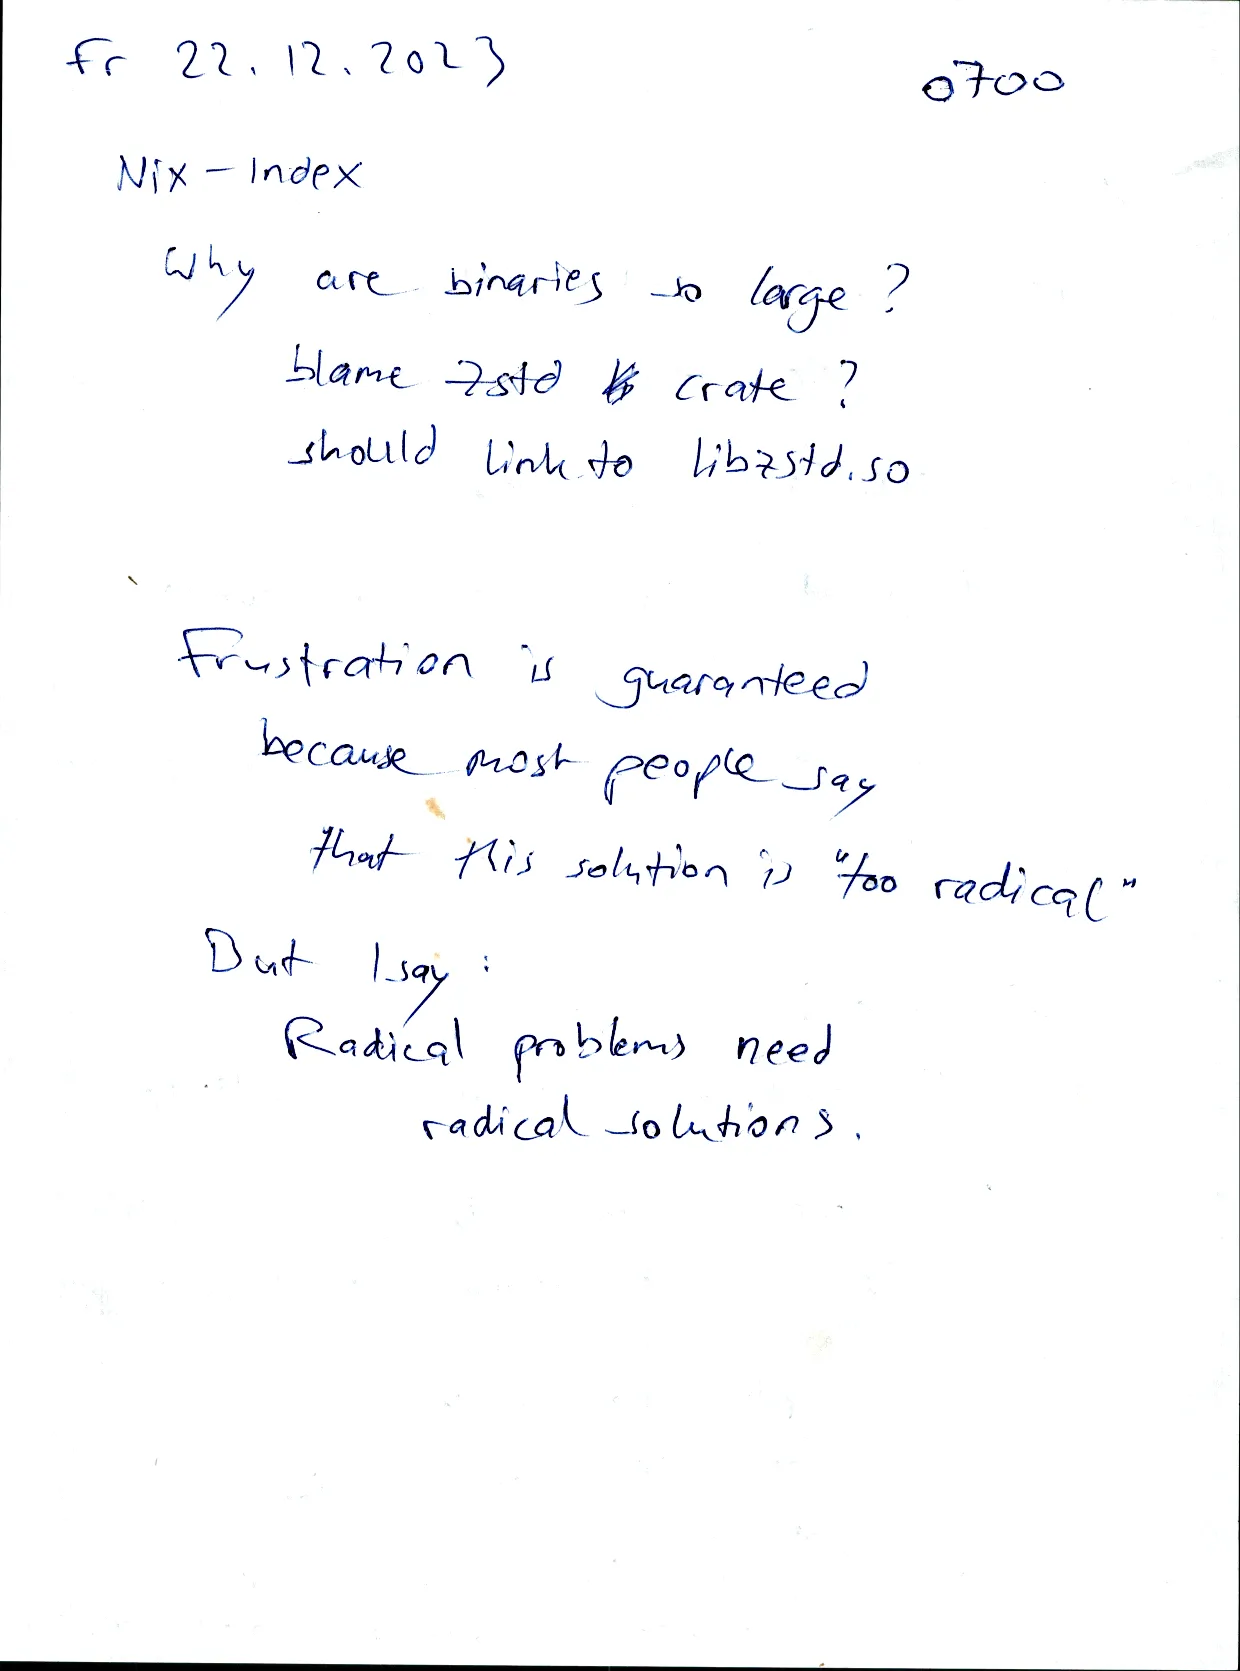 Fr 22.12.2023
0700
Nix-Index
Why are binaries so large?
blame zstd crate?
should link to libzstd.so
Frustration is guaranteed
because most people say
that this solution is "too radical"
But I say:
Radical problems need
radical solutions.